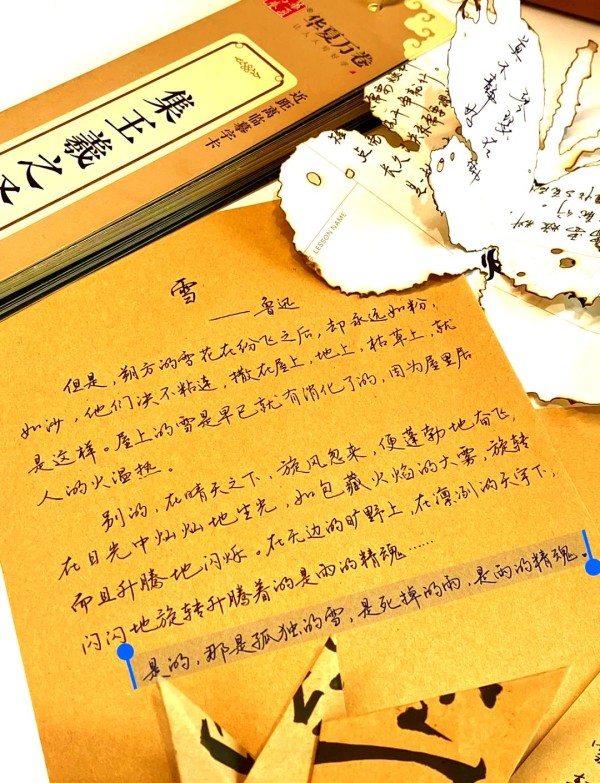 华夏万卷
让人人写好字
近距离临摹字卡
集王羲之
LESSON NAME
雪
——鲁迅
但是，朔方的雪花在纷飞之后，却永远如粉，
如沙，他们决不粘连，撒在屋上，地上，枯草上，就
是这样。屋上的雪是早已就有消化了的，因为屋里居
人的火温热。
别的，在晴天之下，旋风忽来，便蓬勃地奋飞，
在日光中灿灿地生光，如包藏火焰的大雾，旋转
而且升腾地闪烁。在无边的旷野上，在凛冽的天宇下，
闪闪地旋转升腾着的是雨的精魂……
是的，那是孤独的雪，是死掉的雨，是雨的精魂。